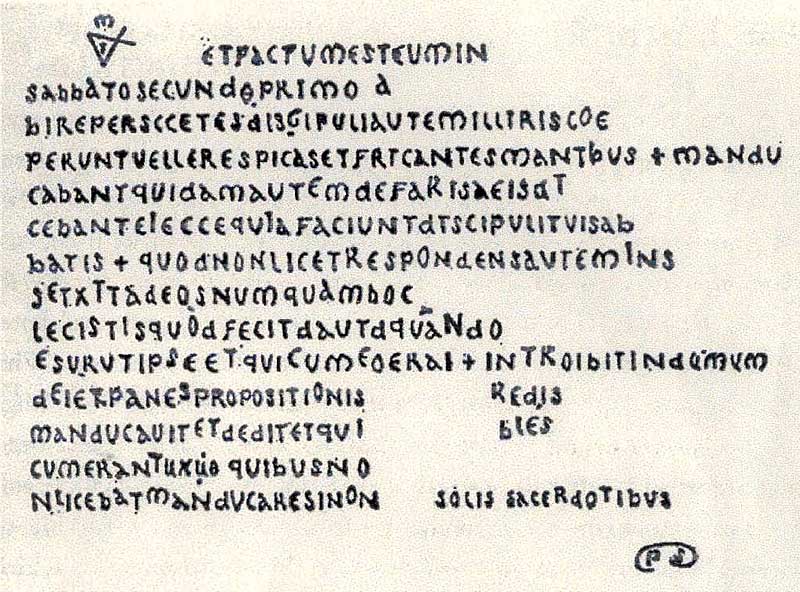 ETFACTUMESTEUMIN
SABBATOSECUNDOPRIMO A
BIREPERSCCETESDISGIPULIAUTEMILLITRISCOE
PERUNTVELLERESPICASETFRTCANTESMANTBUS + MANDU
CABANTQUIDAMAUTEMDEFARISAEISDT
CEBANTEIECCEQUIAFACIUNTDTSCIPULITUISAB
BATIS + QUODNONLICETRESPONDENSAUTEMINS
SETXTTADEOSNUMQUAMBOC
LECISTISQUODFECITDAUTDQUANDO
ESURUTIPSEETQUICUMEOERAI + INTROIBITINDUMUM
DEIETPANESPROPOSITIONIS REDIS
MANDUCAUITETDEDITETQUI BLES
CUMERANTUXUO QUIBUSNO
NLICEBATMANDUCARESINON SOLIS SACERDOTIBUS
PS